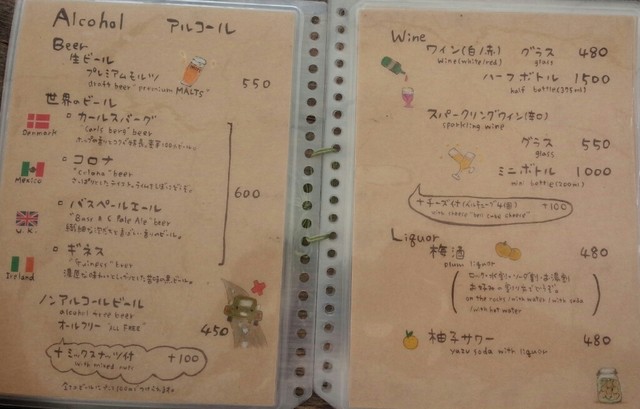 Alcohol アルコール
Beer
生ビール
プレミアムモルツ
draft beer "premium MALTS" 550
世界のビール
カールスバーグ
Denmark
"Carls berg" beer
コロナ
Mexico
"Corona" beer
600
バスペールエール
"Bass & C Pale Ale" beer
U.K.
ギネス
"Guiness" beer
Ireland
ノンアルコールビール
alcohol free beer
オールフリー "ALL FREE" 450
+ミックスナッツ付 +100
with mixed nuts
Wine
ワイン(白/赤) グラス 480
wine(white/red) glass
ハーフボトル 1500
half bottle(375ml)
スパークリングワイン(辛口)
sparkling wine
グラス 550
glass
ミニボトル 1000
mini bottle(200ml)
+チーズ付 +100
Liquor
梅酒 480
plum liquor
on the rocks/with water/with soda
/with hot water
柚子サワー 480
yuzu soda with liquor